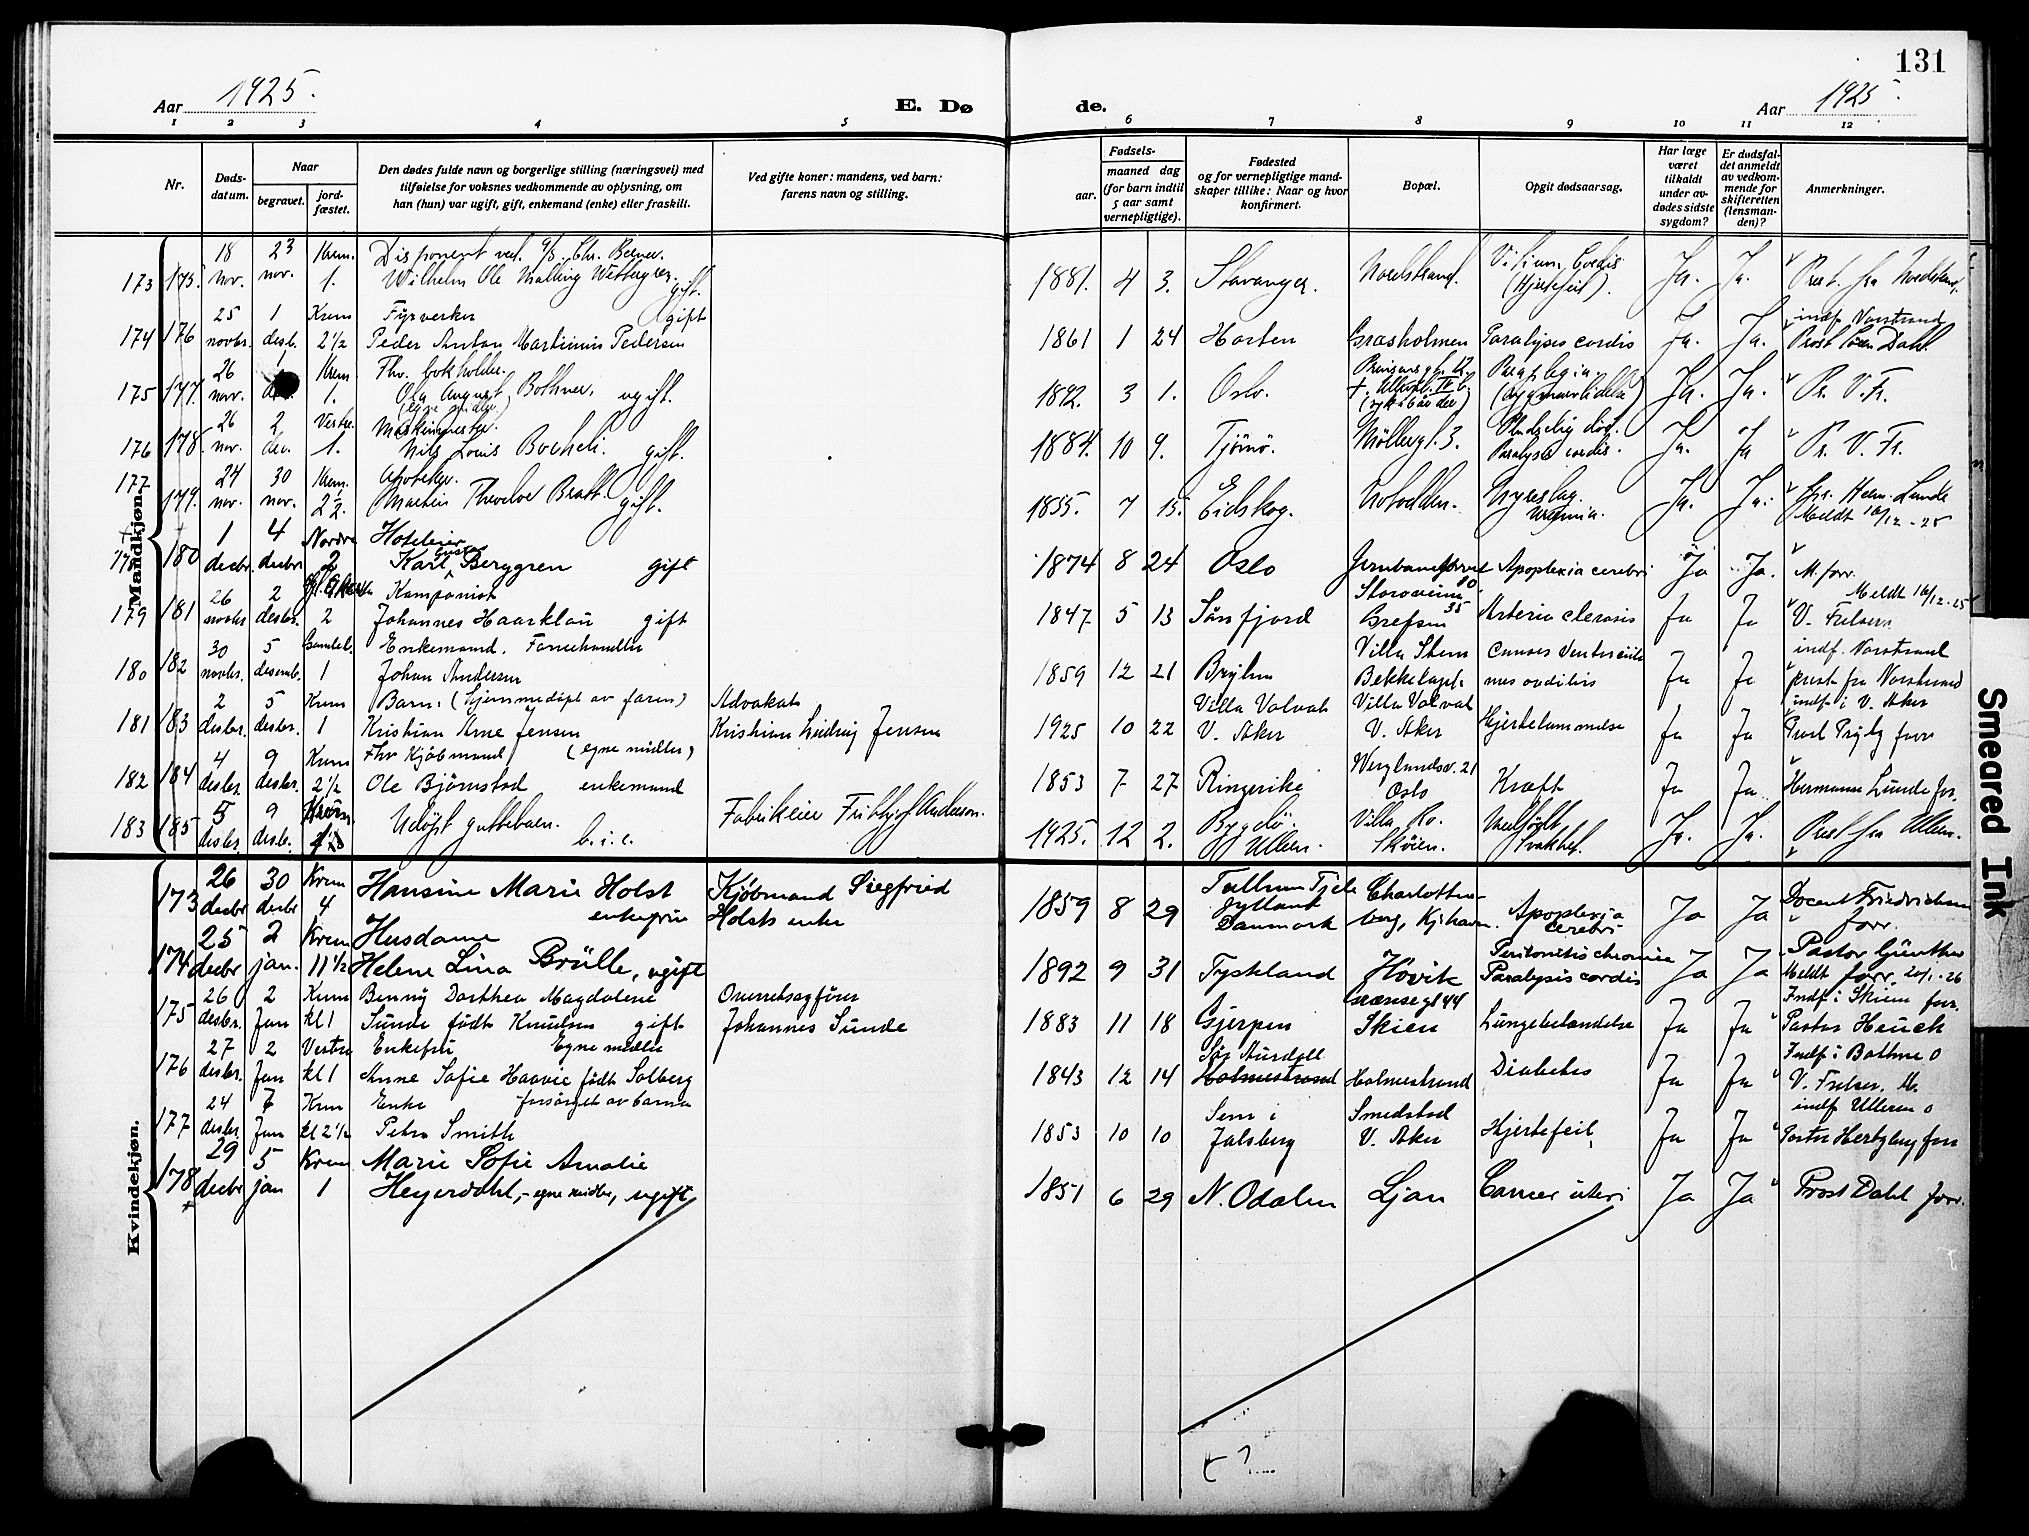 131
Aar 1925.
E. Dø
de.
Aar 1925.
1 2 3 4 5 6 7 8 9 10 11 12
Nr.
Døds-
datum.
Naar
begravet.
jord-
fæstet.
Den dødes fulde navn og borgerlige stilling (næringsvei) med
tilføielse for voksnes vedkommende av oplysning, om
han (hun) var ugift, gift, enkemand (enke) eller fraskilt.
Ved gifte koner: mandens, ved barn:
farens navn og stilling.
Fødsels-
aar.
maaned dag
(for barn indtil
5 aar samt
vernepligtige).
Fødested
og for vernepligtige mand-
skaper tillike: Naar og hvor
konfirmert.
Bopæl.
Opgit dødsaarsag.
Har læge
været
tilkaldt
under av-
dødes sidste
sygdom?
Er dødsfal-
det anmeldt
av vedkom-
mende for
skifteretten
(lensman-
den)?
Anmerkninger.
Mandkjøn.
173 175. 18 nov. 23 nov. Krem. 1. Disponent ved
Wilhelm Ole Malling gift. 1881. 4 3. Stavanger. Nordstrand. Vitium Cordis (Hjertefeil). Ja. Ja. Prest fra
174 176 25 novbr. 1 desb. Krem 2½ Fyrverker gift
Peder Anton Martinius Pedersen 1861 1 24 Horten Græsholmen Paralysis cordis Ja. Ja. indf. Norstrand
Prost Dahl
175 177. 26 nov. Krem. 1. Fhv. bokholder.
Ola August Bothner. ugift.
(egne midler) 1892. 3 1. Oslo. Paraplegia Ja. Ja. Pr. V. Fr.
176 178. 26 nov. 2 Vestre. 1. Maskinmester.
Nils Louis gift. 1884. 10 9. Tjömö. Möllergt. 3. Pludselig död.
Paralyse cordis. Ja. Ja Pr. V. Fr.
177 179. 24 nov. 30 nov. Krem. 2½. Apoteker.
Bratt. gift. 1855. 7 15. Eidskog. Notodden. Ja. Ja.
Meldt 16/12 - 25
178 180 1 decbr. 4 decbr Nordre 2 Hoteleier
Karl Berggren gift 1874 8 24 Oslo Apoplexia cerebri Ja Ja. M. forr.
Meldt 16/12 - 25
179 181 26 novbr 2 desbr. 2 Kampónist
Johannes Haarklau gift 1847 5 13 Sönfjord
35
Grefsen Arteria clerosis Ja Ja V. Frelsern
180 182 30 novbr. 5 desemb. Gamleb. 1 Enkemand.
Johan Andersen 1859 12 21 Bryhn Villa Sken
Bekkelaget Ja Ja indf. Norstrand
prest fra Norstrand
181 183 2 desbr. 5 desbr. Krem 1 Barn: (hjemmedöpt av faren)
Kristian Arne Jensen Advokat
Kristian Ludvig Jensen 1925 10 22 Villa Volvat
V. Aker Villa Volvat
V. Aker Hjertelammelse Ja Ja indf. i V. Aker
182 184 4 desbr. 9 desbr. Krem 2½ Fhv Kjöbmand (egne midler)
Ole Björnstad enkemand 1853 7 27 Ringerike 21
Oslo Kræft Ja Ja Hermann Lunde for.
183 185 5 desbr. 9 desb. Krem. Udöpt guttebarn. Fabrikeier Andersen. 1925. 12 2. Bygdö.
Ullern. Villa Ro.
Sköien. Medfödt
svakhet. Ja. Ja. Prest fra Ullern.
Kvindekjøn.
173 26 decbr 30 decbr Krem 4 Hansine Marie Holst
enkefrue Kjöbmand Siegfried
Holsts enke 1859 8 29 Tjele
Jylland
Danmark Charlotten-
berg, Kjöhavn. Apoplexia
cerebri Ja Ja Docent Friedrichsen
forr.
174 25 decbr 2 jan. Krem 11½ Husdame
Helene Lina Brülle, ugift 1892 9 31 Tyskland Hövik Peritonitis chronica
Paralysis cordis Ja Ja Pastor Günther
Meldt forr. 20/1 - 26
175 26 desbr. 2 Jan Krem kl 1 Benny Dorthea Magdalene
Sunde född Knudsen gift Overretsagförer
Johannes Sunde 1883 11 18 Gjerpen Grænsegt 44
Skien Lungebetændelse Ja Ja Indf. i Skien forr.
Pastor Heuch
176 27 desbr. 2 Jan Vestre kl 1 Enkefru Egne midler
Anne Sofie Haavie född Solberg 1843 12 14 Sör Aurdal
Holmestrand Holmestrand Diabetes Ja Ja Indf i Botne o
V. Frelser. M.
177 24 desbr. 7 Jan Krem kl 2½ Enke forsörget av barna
Petra Smith 1853 10 10 Sem i
Jalsberg Smedstad
V. Aker Hjertefeil Ja Ja indf Ullern o
Pastor Hertzberg forr
178 29 decbr 5 jan Krem 1 Marie Sofie Amalie
Heyerdahl, - egne midler, ugift 1851 6 29 N. Odalen Ljan Cancer uteri Ja Ja Prost Dahl forr.
Smeared Ink